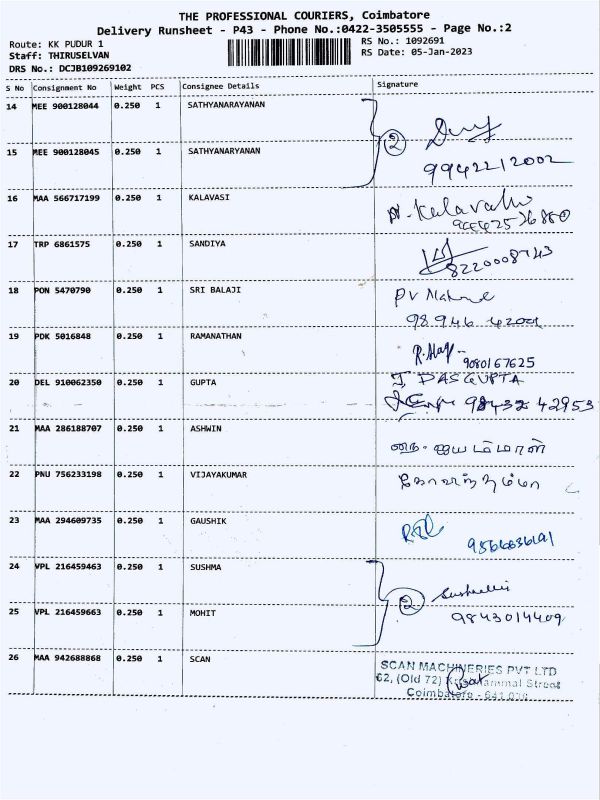 THE PROFESSIONAL COURIERS, Coimbatore
Delivery Runsheet - P43 - Phone No.:0422-3505555 - Page No.:2
Route: KK PUDUR 1
RS No.: 1092691
Staff: THIRUSELVAN
RS Date: 05-Jan-2023
DRS No.: DCJB109269102
S No Consignment No Weight PCS Consignee Details Signature
14 MEE 900128044 0.250 1 SATHYANARAYANAN
2
15 MEE 900128045 0.250 1 SATHYANARYANAN
9942212002
16 MAA 566717199 0.250 1 KALAVASI
N. Kalavathi
17 TRP 6861575 0.250 1 SANDIYA
8220008743
18 PON 5470790 0.250 1 SRI BALAJI
PV
19 PDK 5016848 0.250 1 RAMANATHAN
9080167625
20 DEL 910062350 0.250 1 GUPTA
J DASGUPTA
98432 42953
21 MAA 286188707 0.250 1 ASHWIN
22 PNU 756233198 0.250 1 VIJAYAKUMAR
23 MAA 294609735 0.250 1 GAUSHIK
24 VPL 216459463 0.250 1 SUSHMA
2
25 VPL 216459663 0.250 1 MOHIT
9843014409
26 MAA 942688868 0.250 1 SCAN
SCAN MACHINERIES PVT LTD
62, (Old 72) Street
Coimbatore - 641